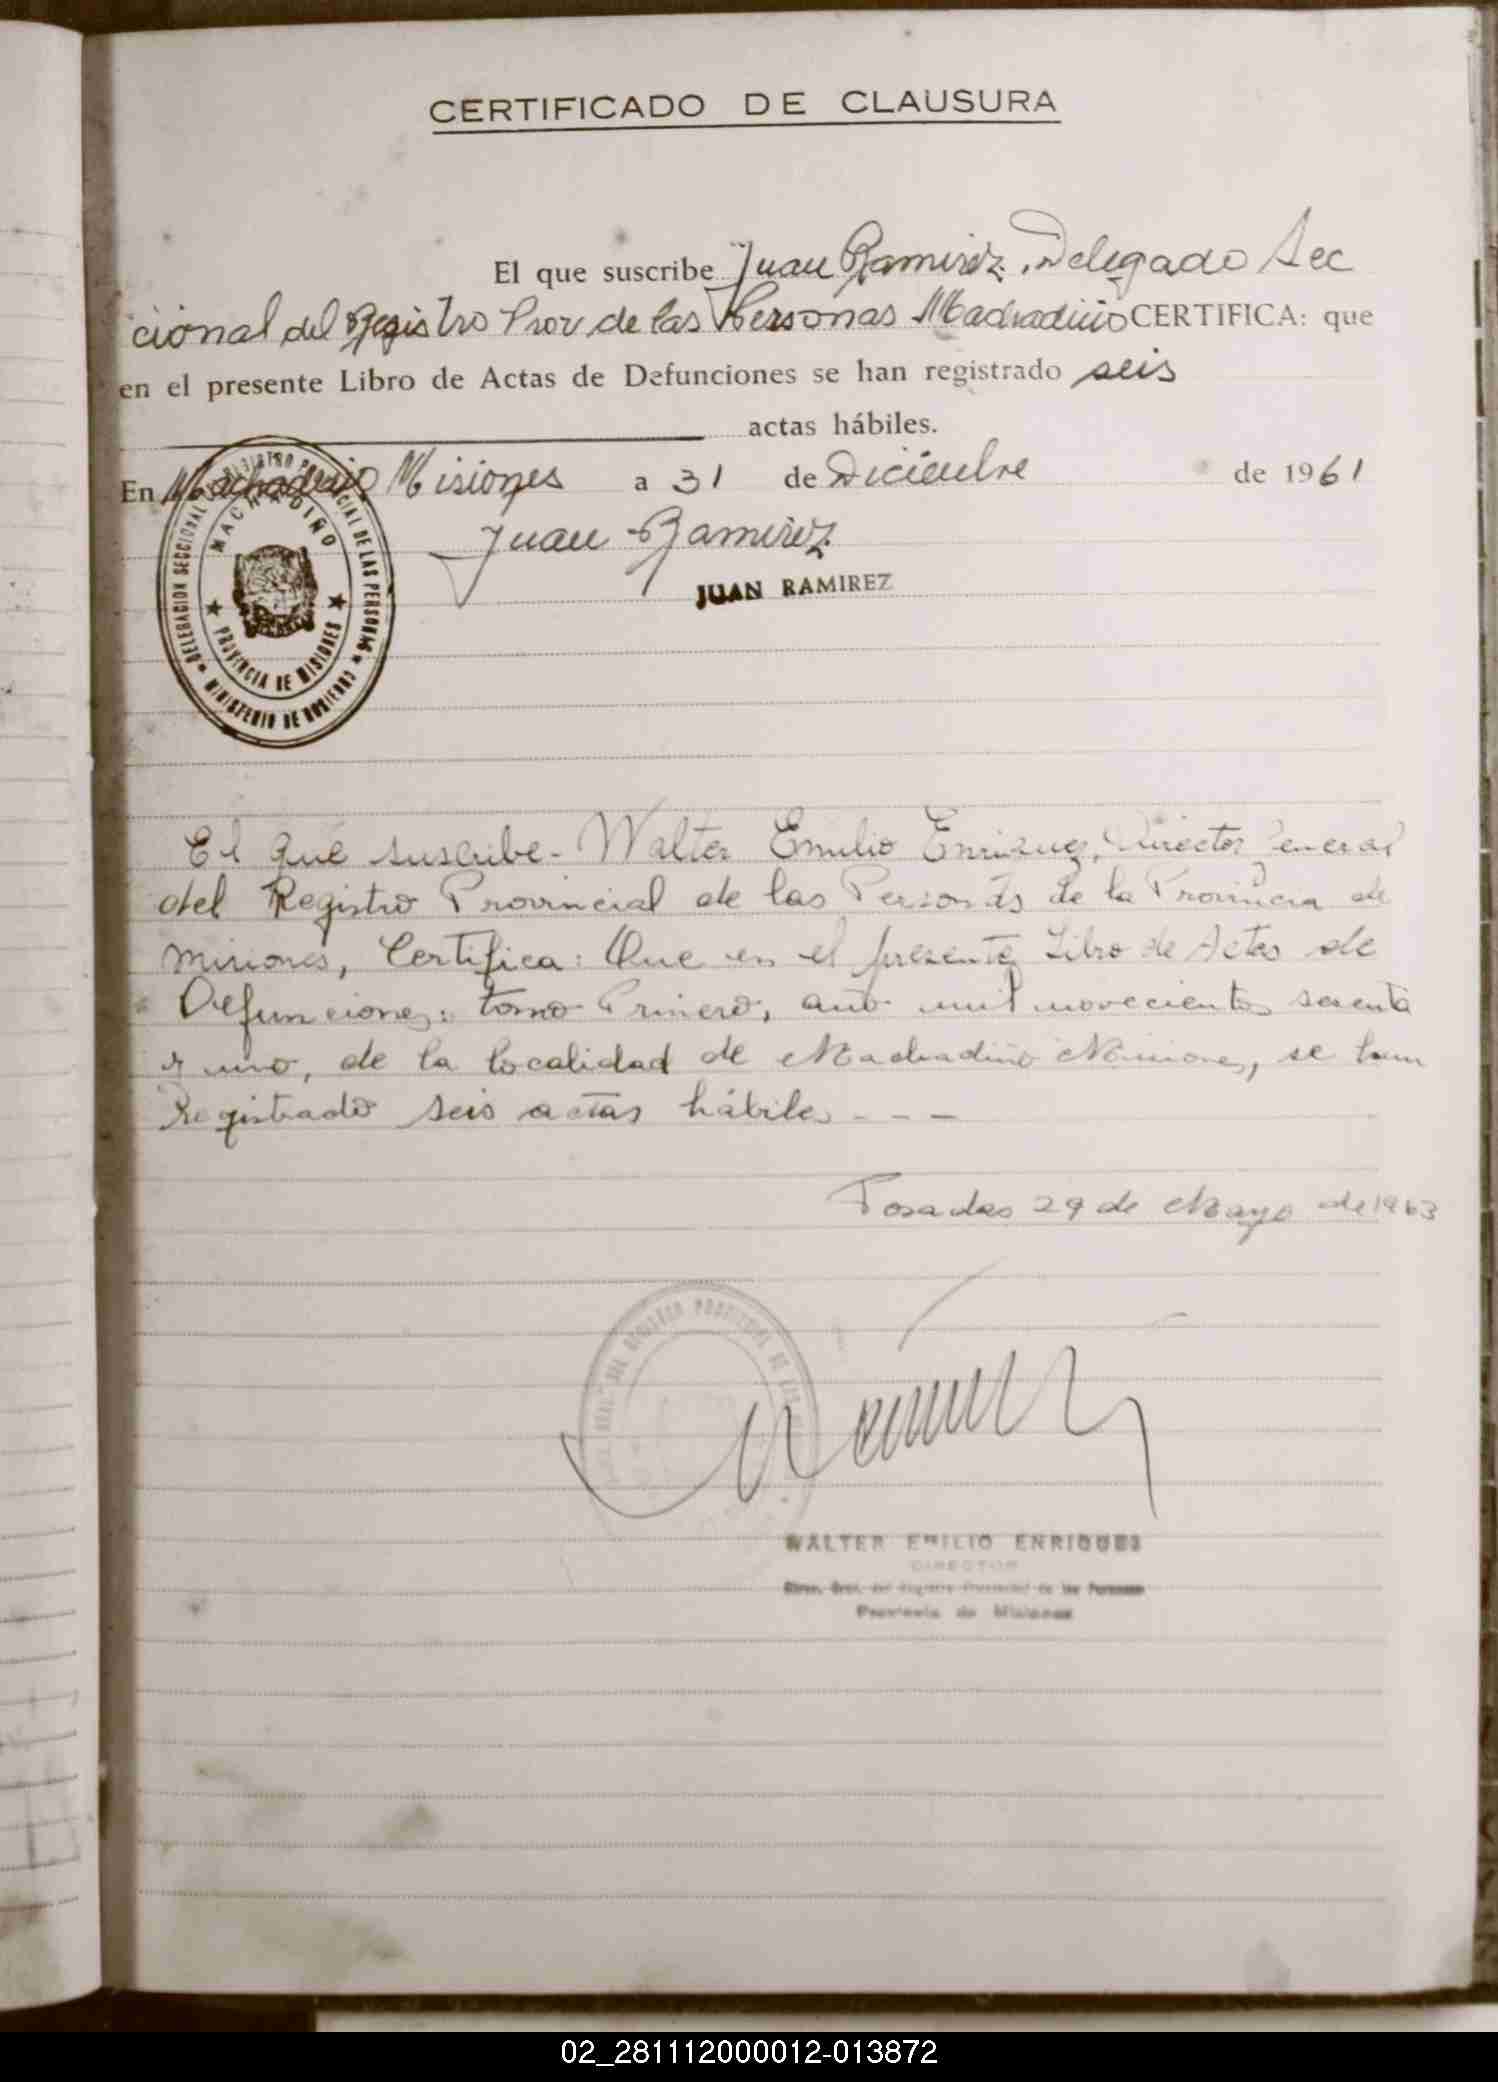 CERTIFICADO DE CLAUSURA
El que suscribe Juan Ramirez, Delegado Sec
cional del Registro Prov de las Personas Machadiño CERTIFICA: que
en el presente Libro de Actas de Defunciones se han registrado seis
actas hábiles.
En Machadiño Misiones a 31 de Diciembre de 1961
Juan Ramirez
JUAN RAMIREZ
DELEGACION SECCIONAL REGISTRO PROVINCIAL DE LAS PERSONAS
MACHADIÑO
PROVINCIA DE MISIONES
MINISTERIO DE GOBIERNO
El que suscribe - Walter Emilio Enriquez, Director General
del Registro Provincial de las Personas de la Provincia de
Misiones, Certifica: Que en el presente Libro de Actas de
Defunciones: tomo Primero, año mil novecientos sesenta
y uno, de la localidad de Machadiño Misiones, se han
Registrado seis actas hábiles - - -
Posadas 29 de Mayo de 1963
DEL REGISTRO PROVINCIAL DE LAS
WALTER EMILIO ENRIQUES
DIRECTOR
Direc. Gral. del Registro Provincial de las Personas
Provincia de Misiones
02_281112000012-013872